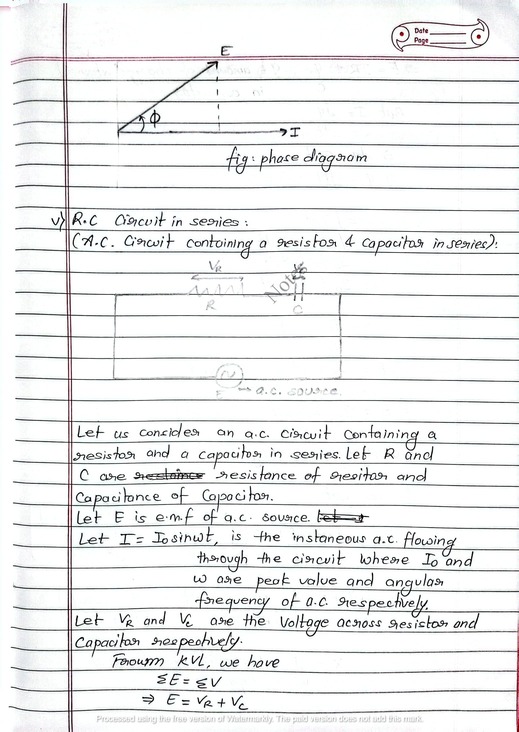 Date
Page
E
ϕ
I
fig: phase diagram
v) R.C Circuit in series:
(A.C. Circuit containing a resistor & capacitor in series):
VR
Vc
Note
R
C
E
a.c. source.
Let us consider an a.c. circuit containing a
resistor and a capacitor in series. Let R and
C are resistance of resitor and
Capacitance of Capacitor.
Let E is e.m.f of a.c. source.
Let I = I₀ sinωt, is the instaneous a.c. flowing
through the circuit where I₀ and
ω are peak value and angular
frequency of a.c. respectively.
Let VR and Vc are the voltage across resistor and
Capacitor respectively.
KVL, we have
ΣE = ΣV
⇒ E = VR + Vc
Processed using the free version of Watermarkly. The paid version does not add this mark.